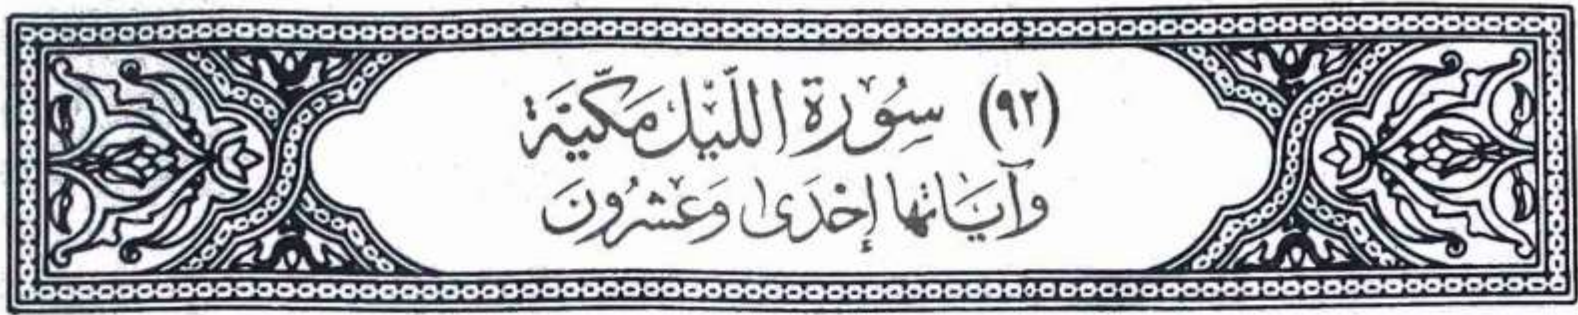 (٩٢) سُورَة اللَّيْل مَكِّيَّة
وَآيَاتُها إِحْدَى وَعِشْرُونَ